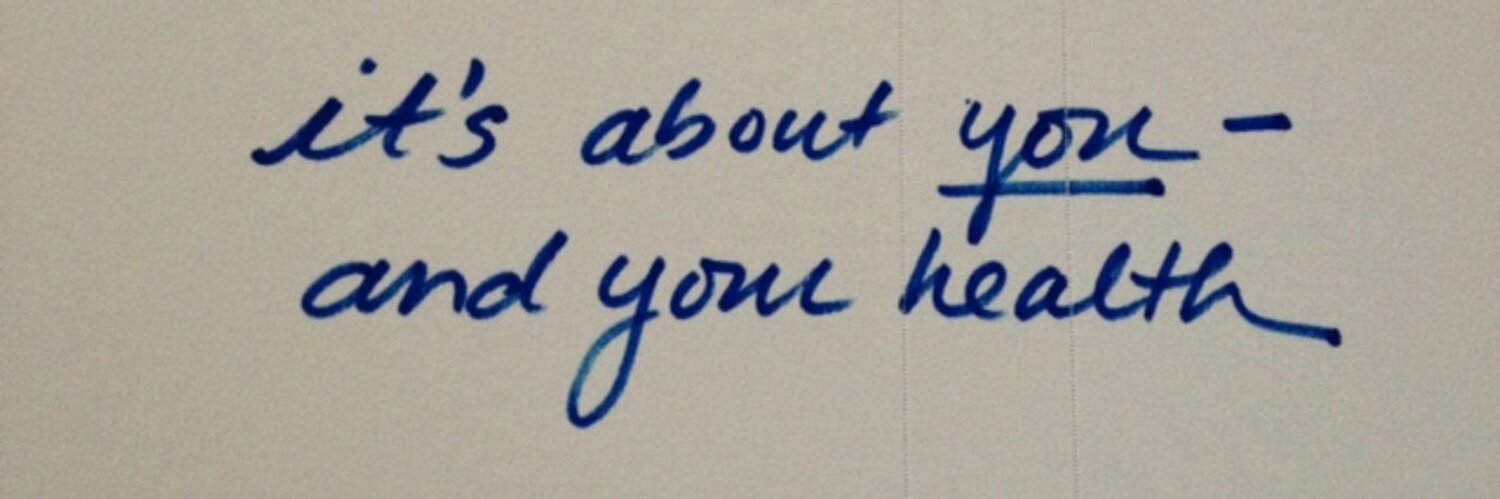 it's about you -
and your health